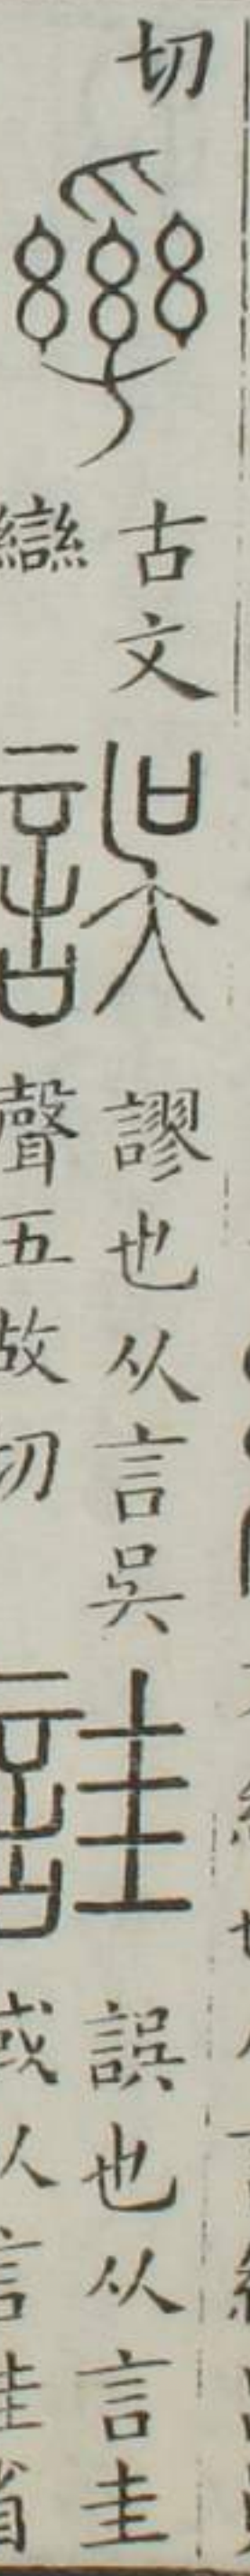 切
𤔔
古文
䜌
誤
謬也从言吳
聲五故切
詿
誤也从言圭
或从言
省